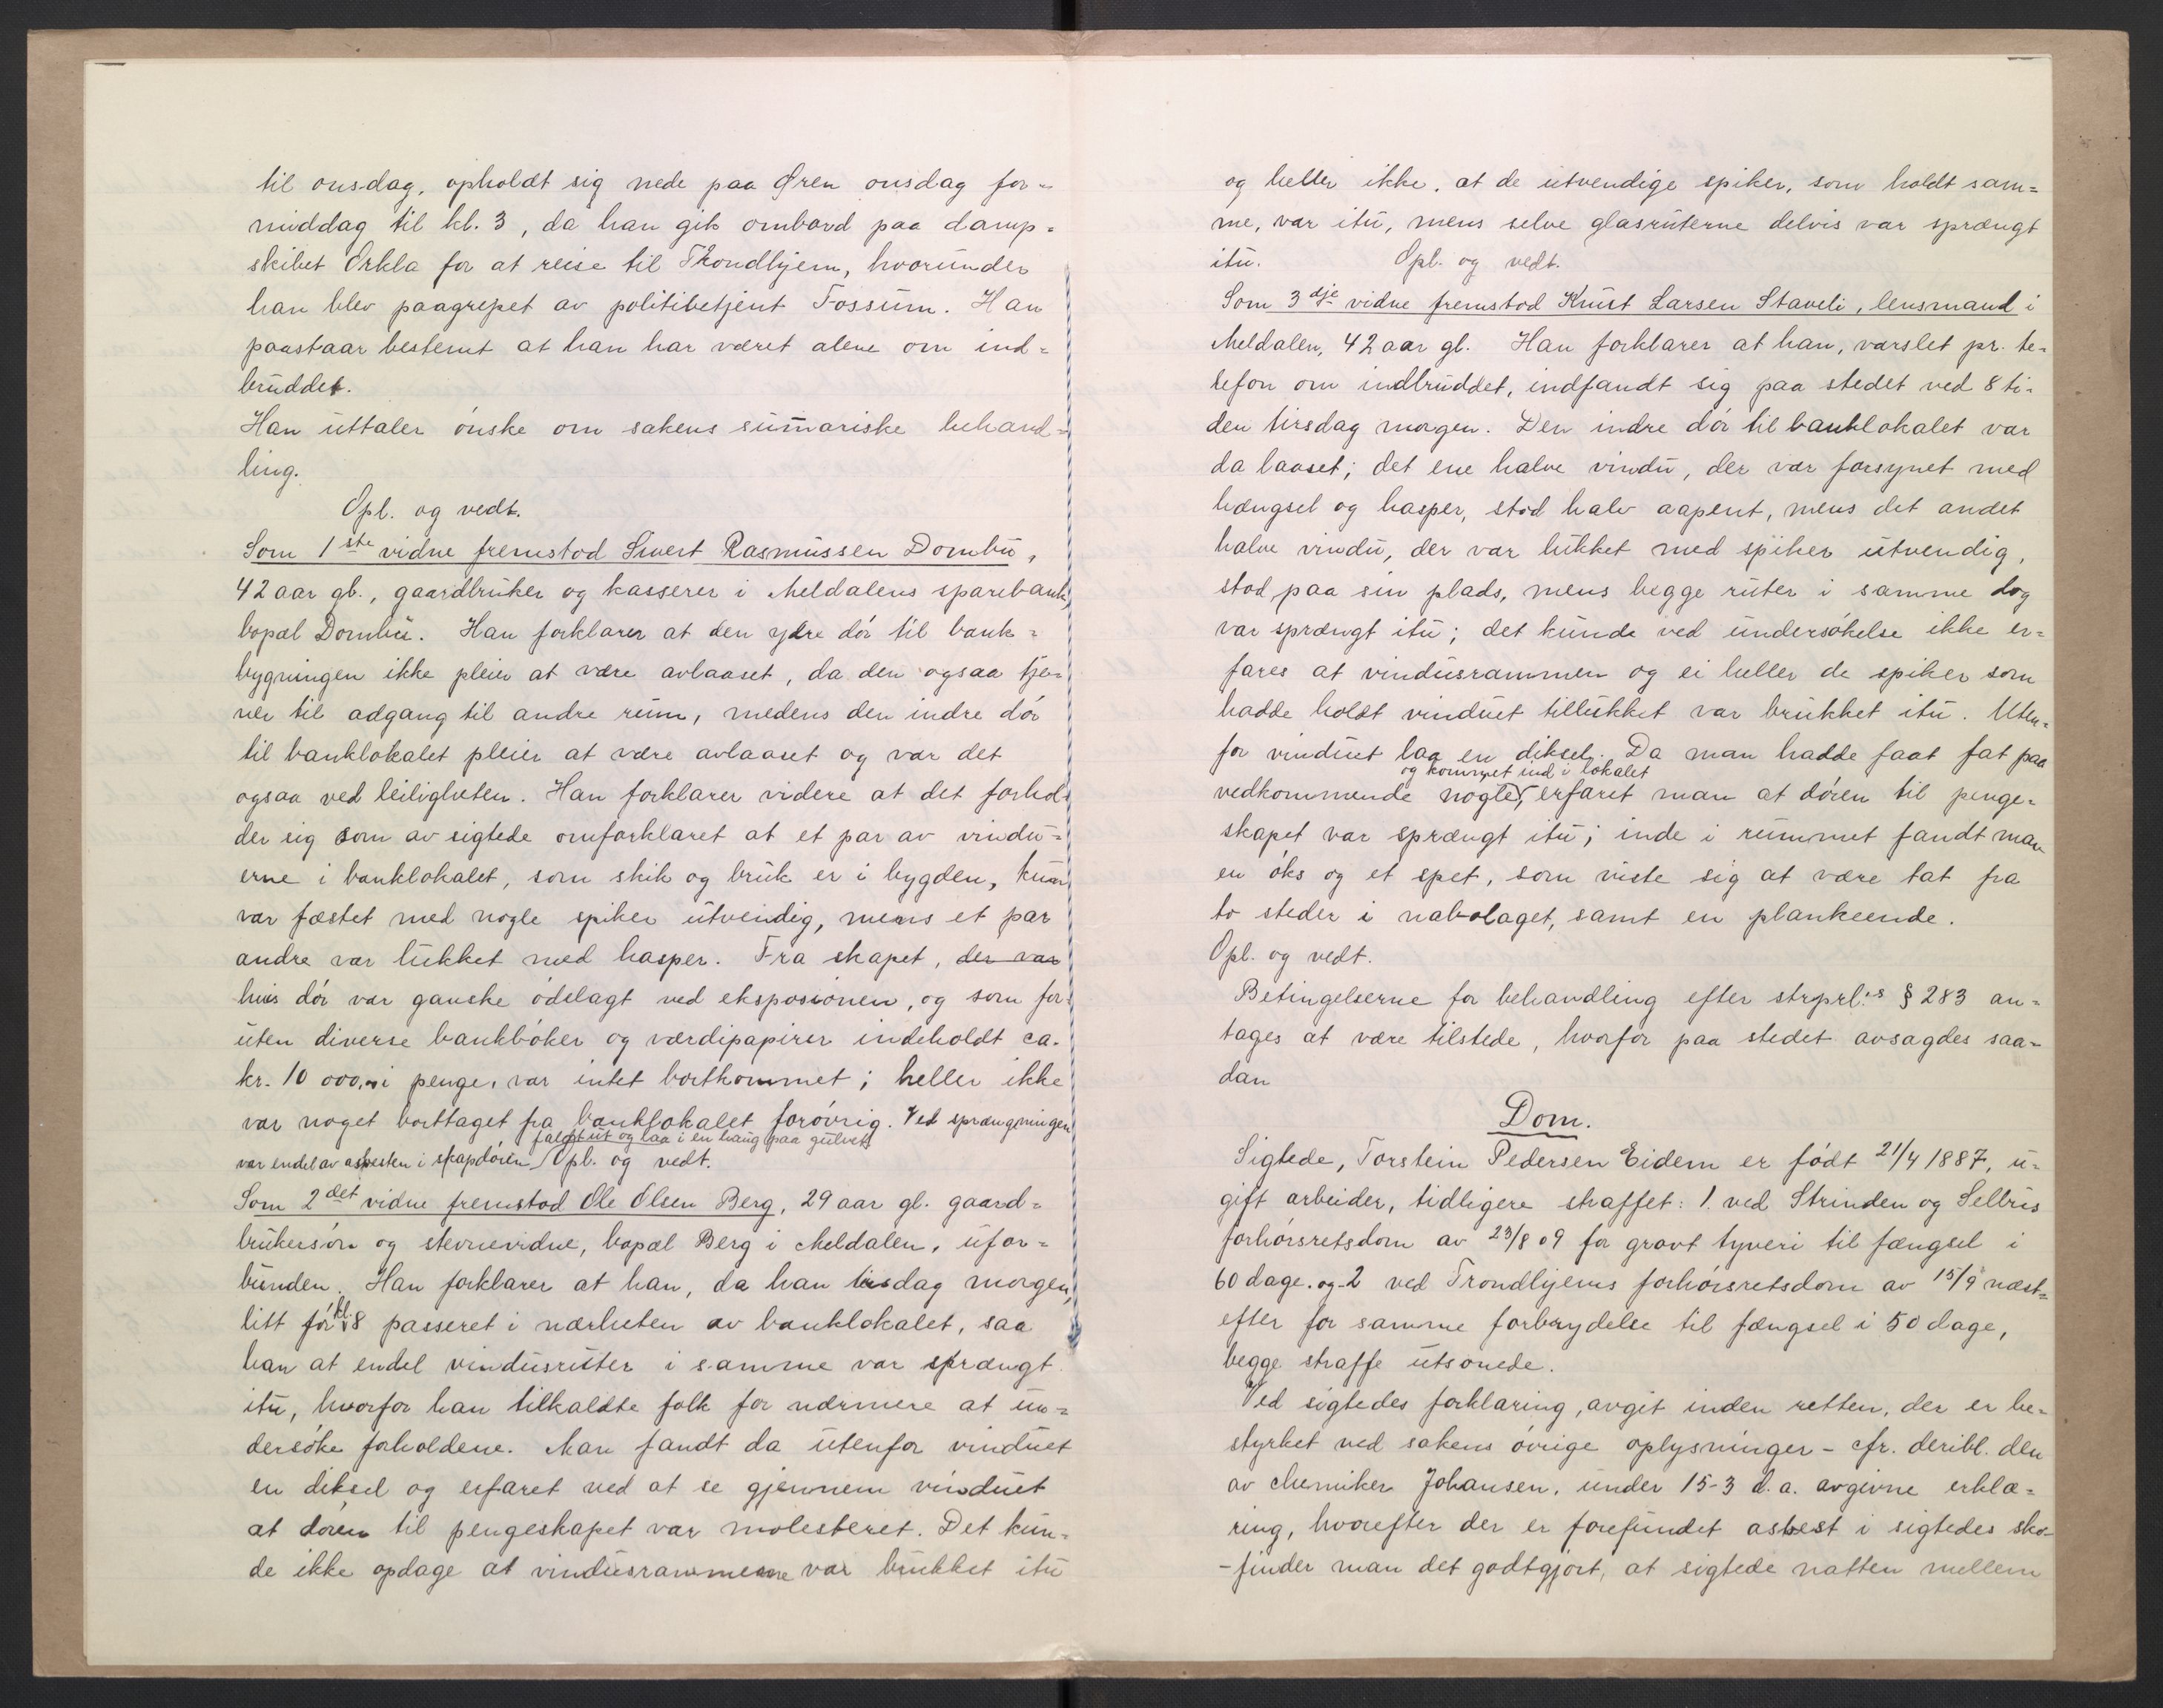 til onsdag, opholdt sig nede paa Øren onsdag for-
middag til kl. 3, da han gik ombord paa damp-
skibet Orkla for at reise til Trondhjem, hvorunder
han blev paagrepet av politibetjent Fossum. Han
paastaar bestemt at han har været alene om ind-
bruddet.
Han uttaler ønske om sakens summariske behand-
ling.
Opl. og vedt.
Som 1ste vidne fremstod Sivert Rasmussen Dombu,
42 aar gl., gaardbruker og kasserer i Meldalens sparebank,
bopæl Dombu. Han forklarer at den ydre dør til bank-
bygningen ikke pleier at være avlaaset, da den ogsaa tje-
ner til adgang til andre rum, medens den indre dør
til banklokalet pleier at være avlaaset og var det
ogsaa ved leiligheten. Han forklarer videre at det forhol-
der sig som av sigtede omforklaret at et par av vindu-
erne i banklokalet, som skik og bruk er i bygden, kun
var fæstet med nogle spiker utvendig, mens et par
andre var lukket med hasper. Fra skapet, der var
hvis dør var ganske ødelagt ved eksposionen, og som for-
uten diverse bankbøker og værdipapirer indeholdt ca.
kr. 10 000,- i penge, var intet bortkommet; heller ikke
var noget borttaget fra banklokalet forøvrig. Ved sprængningen
faldt ut og laa i en haug paa gulvet
var endel av asbesten i skapdøren Opl. og vedt.
Som 2det vidne fremstod Ole Olsen Berg, 29 aar gl. gaard-
brukersøn og stevnevidne, bopæl Berg i Meldalen, ufor-
bunden. Han forklarer at han, da han tirsdag morgen,
litt før kl. 8 passeret i nærheten av banklokalet, saa
han at endel vindusruter i samme var sprængt
itu, hvorfor han tilkaldte folk for nærmere at un-
dersøke forholdene. Man fandt da utenfor vinduet
en diksel og erfaret ved at se gjennem vinduet
at døren til pengeskapet var molesteret. Det kun-
de ikke opdage at vindusrammerne var brukket itu
og heller ikke, at de utvendige spiker, som holdt sam-
me, var itu, mens selve glasruterne delvis var sprængt
itu. Opl. og vedt.
Som 3dje vidne fremstod Knut Larsen Staveli, lensmand i
Meldalen, 42 aar gl. Han forklarer at han, varslet pr. te-
lefon om indbruddet, indfandt sig paa stedet ved 8 ti-
den tirsdag morgen. Den indre dør til banklokalet var
da laaset; det ene halve vindu, der var forsynet med
hængsel og hasper, stod halv aapent, mens det andet
halve vindu, der var lukket med spiker utvendig,
stod paa sin plads, mens begge ruter i samme dog
var sprængt itu; det kunde ved undersøkelse ikke er-
fares at vindusrammen og ei heller de spiker som
hadde holdt vinduet tillukket var brukket itu. Uten-
for vinduet laa en diksel. Da man hadde faat fat paa
og kommet ind i lokalet
vedkommende nøgler, erfaret man at døren til penge-
skapet var sprængt itu; inde i rummet fandt man
en øks og et spet, som viste sig at være tat fra
to steder i nabolaget, samt en plankeende.
Opl. og vedt.
Betingelserne for behandling efter strprl.'s § 283 an-
tages at være tilstede, hvorfor paa stedet avsagdes saa-
dan
Dom.
Sigtede, Torstein Pedersen Eidem er født 21/4 1887, u-
gift arbeider, tidligere straffet: 1. ved Strinden og Selbus
forhørsretsdom av 23/8 09 for grovt tyveri til fængsel i
60 dage. og 2 ved Trondhjems forhørsretsdom av 15/9 næst-
efter for samme forbrydelse til fængsel i 50 dage,
begge straffe utsonede.
Ved sigtedes forklaring, avgit inden retten, der er be-
styrket ved sakens øvrige oplysninger - cfr. deribl. den
av chemiker Johansen, under 15-3 d. a. avgivne erklæ-
ring, hvorefter der er forefundet asbest i sigtedes sko-
- finder man det godtgjort, at sigtede natten mellem